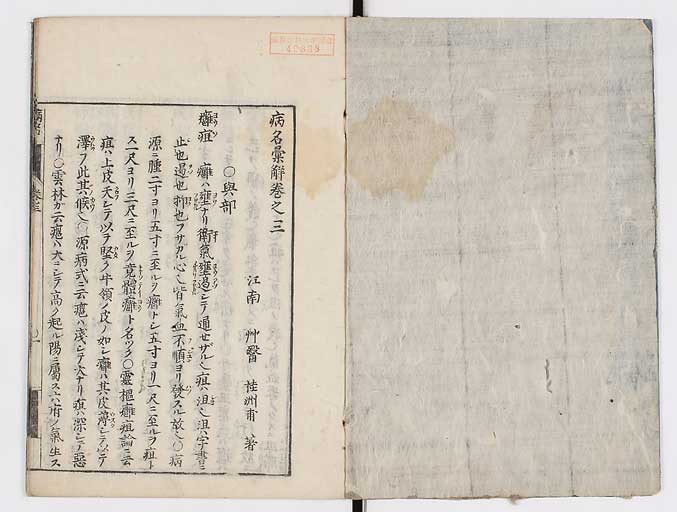 病名彙解巻之三
江南 艸醫 桂洲甫 著
〇與部
癰疽 癰ハ壅ナリ衛氣壅遏シテ通セザル也疽ハ沮也沮ハ字書ニ
止也遏也抑也フサガル心也皆氣血不順ヨリ發スル故也〇病
源ニ腫二寸ヨリ五寸ニ至ルヲ癰トシ五寸ヨリ一尺ニ至ルヲ疽ト
ス一尺ヨリ二尺ニ至ルヲ竟體癰ト名ツク〇靈樞癰疽論ニ云
疽ハ上皮夭シテ以テ堅ク牛領ノ皮ノ如シ癰ハ其皮薄シテ以テ
澤フ此其候也〇源病式ニ云癰ハ淺シテ大ナリ疽ハ深シテ惡
ナリ〇雲林ガ云癰ハ大ニシテ高ク起ル陽ニ屬ス六府ノ氣生ス